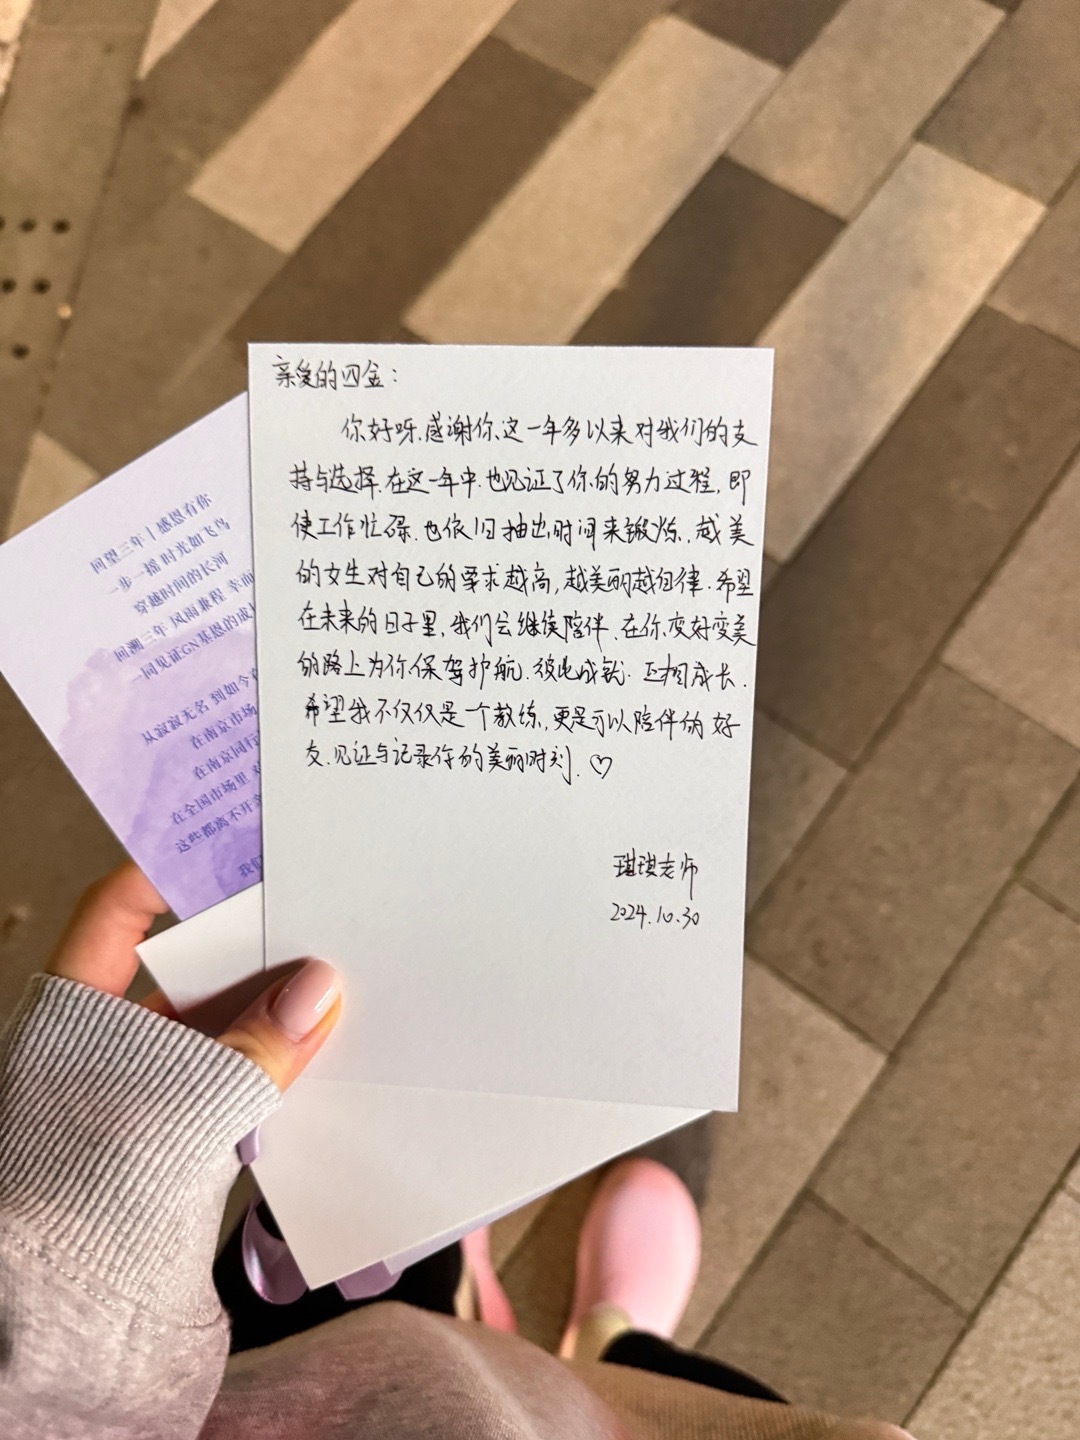 亲爱的四金：
你好呀、感谢你、这一年多以来对我们的支
持与选择、在这一年中、也见证了你的努力过程，即
使工作忙碌、也依旧抽出时间来锻炼，越美
的女生对自己的要求越高，越美丽越自律、希望
在未来的日子里，我们会继续陪伴、在你变好变美
的路上为你保驾护航、彼此成就、互相成长、
希望我不仅仅是一个教练，更是可以陪伴的好
友、见证与记录你的美丽时刻、♡
琪琪老师
2024.10.30
回望三年丨感恩有你
一步一摇 时光如飞鸟
穿越时间的长河
回溯三年 风雨兼程 幸而
一同见证GN基恩的成
从寂寂无名 到如今
在南京市场
在南京同行
在全国市场里
这些都离不开
我们